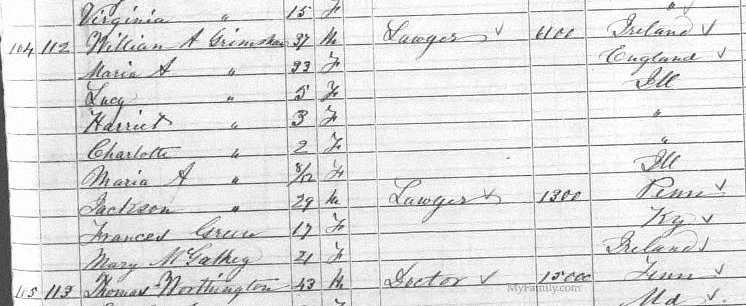 Virginia " 15 F "
104 112 William A Grimshaw 37 M Lawyer 6100 Ireland
Maria A " 33 F England
Lucy " 5 F Ill
Harriet " 3 F "
Charlotte " 2 F "
Maria A " 8/12 F Ill
Jackson " 29 M Lawyer 1300 Penn
Frances Green 17 F Ky
Mary 21 F Ireland
105 113 Thomas Worthington 43 M Doctor 15000 Tenn
MyFamily.com
Md